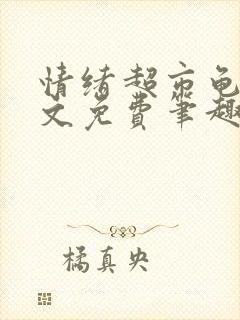 情绪超市龟
文免费笔趣
橘真央